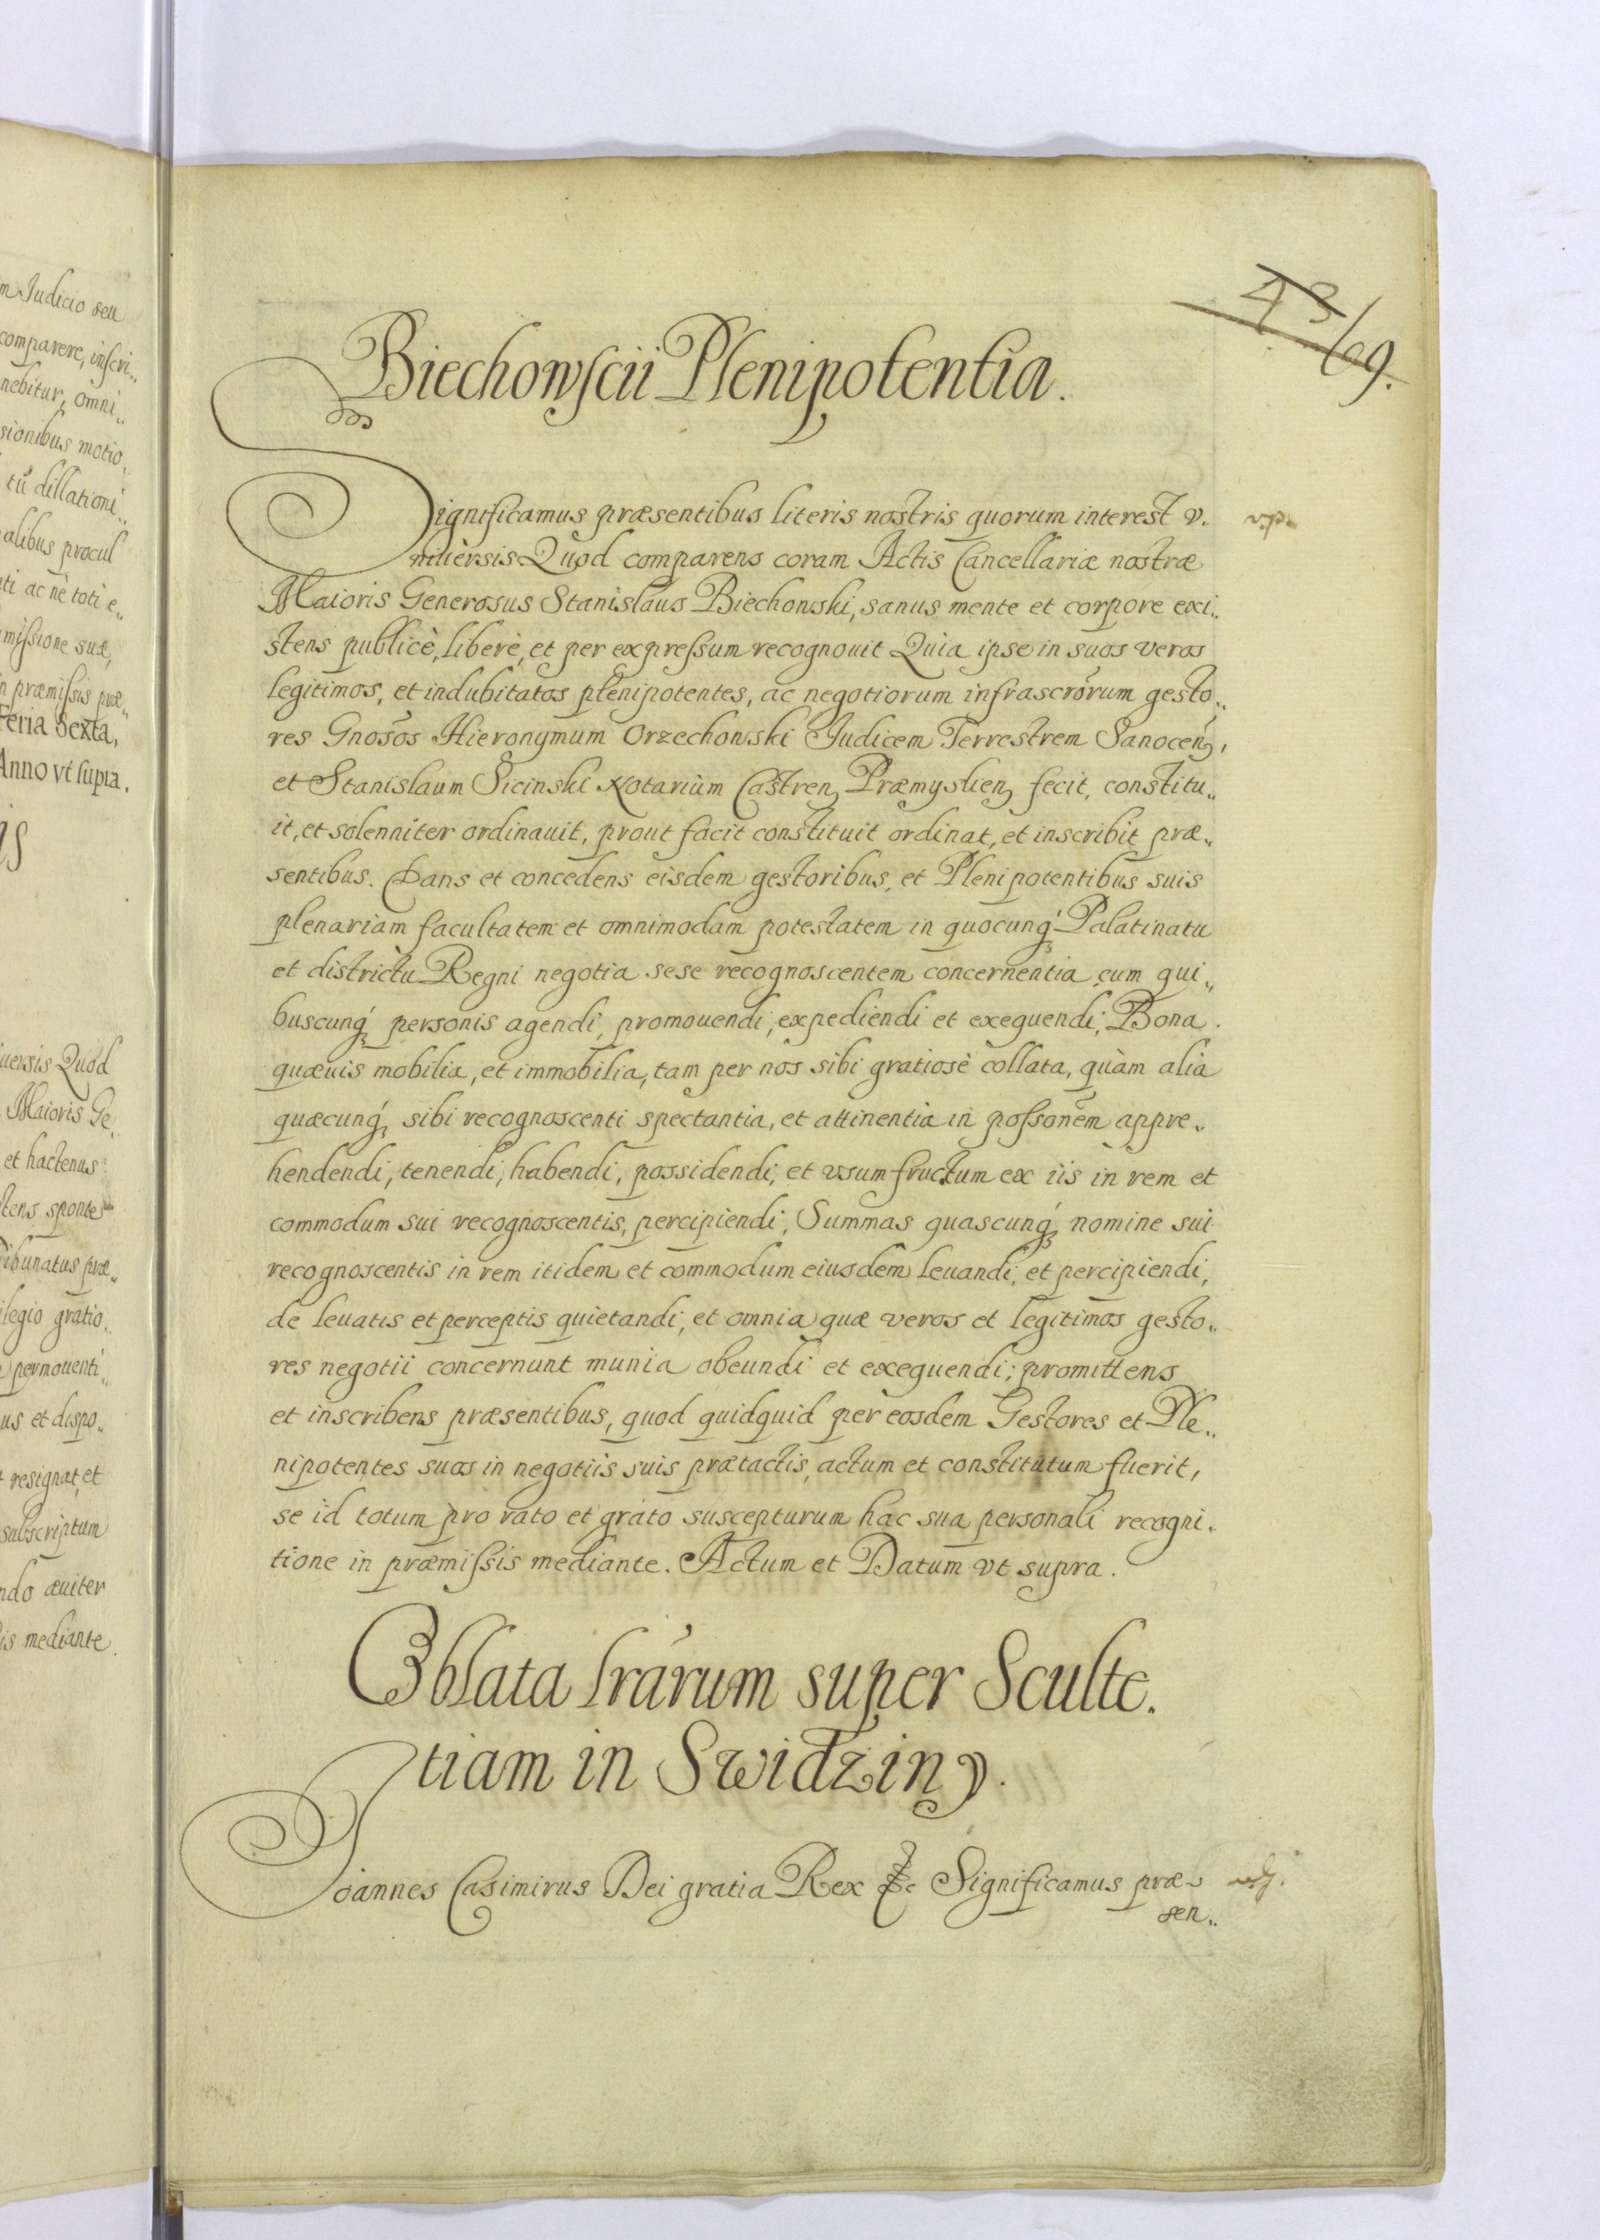 m Judicio seu
comparere, inscri„
nebitur, omni„
sionibus motio„
tū dillationi„
alibus procul
ti ac nè toti e„
missione suæ,
n præmissis præ„
Feria Sexta,
Anno vt supra.
is
iuersis Quod
Maioris Ge„
et hactenus
stens sponte
ribunatus præ„
ilegio gratio„
permouenti„
us et dispo„
resignat, et
subscriptum
ndo æuiter
is mediante.
43
69.
Biechowscii Plenipotentia.
Significamus præsentibus literis nostris quorum interest v.
niuersis Quod comparens coram Actis Cancellariæ nostræ
Maioris Generosus Stanislaus Biechowski, sanus mente et corpore exi„
stens publicè, liberè, et per expressum recognouit Quia ipse in suos veros
legitimos, et indubitatos plenipotentes, ac negotiorum infrascrõrum gesto„
res Gnosos Hieronymum Orzechowski Judicem Terrestrem Sanocen,
et Stanislaum Sicinski Notarium Castren Præmyslien fecit, constitu„
it, et solenniter ordinauit, prout facit constituit ordinat, et inscribit præ„
sentibus. Dans et concedens eisdem gestoribus, et Plenipotentibus suis
plenariam facultatem et omnimodam potestatem in quocunq́ Palatinatu
et districtu Regni negotia sese recognoscentem concernentia cum qui„
buscunq́ personis agendi, promouendi, expediendi et exequendi; Bona
quæuis mobilia, et immobilia, tam per nos sibi gratiosè collata, quàm alia
quæcunq́ sibi recognoscenti spectantia, et attinentia in possonem appre„
hendendi, tenendi, habendi, possidendi, et vsum fructum ex iis in rem et
commodum sui recognoscentis, percipiendi, Summas quascunq́ nomine sui
recognoscentis in rem itidem et commodum eiusdem leuandi, et percipiendi,
de leuatis et perceptis quietandi, et omnia quæ veros et legitimos gesto„
res negotii concernunt munia obeundi et exequendi; promittens
et inscribens præsentibus, quod quidquid per eosdem Gestores et Ple„
nipotentes suos in negotiis suis prætactis, actum et constitutum fuerit,
se id totum pro rato et grato suscepturum hac sua personali recogni„
tione in præmissis mediante. Actum et Datum vt supra.
Oblata lrarum super Sculte.
tiam in Swidziny.
Joannes Casimirus Dei gratia Rex &c Significamus præ„
sen„